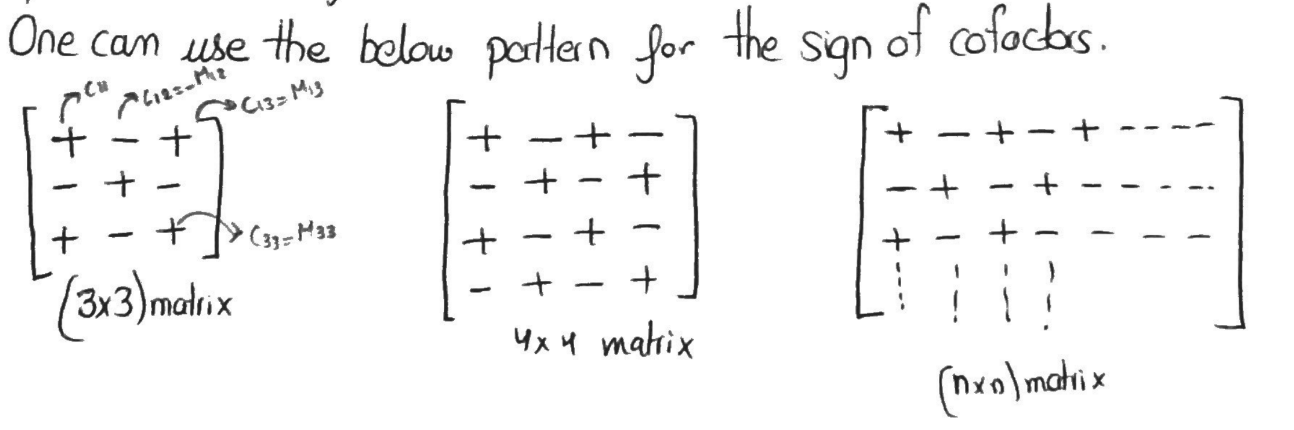 One can use the below pattern for the sign of cofactors.
C11 C12=-M12 C13=M13
+ - + + - + - + - + - + - - - -
- + - - + - + - + - + - - - - -
+ - + C33=M33 + - + - + - + - - - -
- + - +
(3x3) matrix 4x4 matrix (nxn) matrix